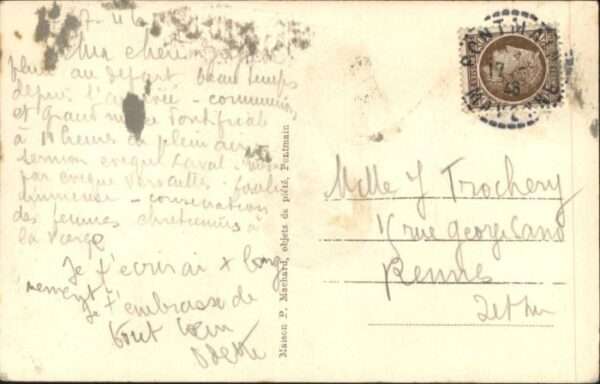 7. 46
Ma chérie
pluie au départ beau temps
depuis l'arrivée - communion
et Grand messe Pontificale
à 11 heures en plein air
sermon evêque Laval - messe
par eveque Versailles - foule
immense - consecration
des femmes chretiennes à
la Vierge
Je t'ecrirai + long
nement
Je t'embrasse de
tout coeur
Odette
Maison P. Machard, objets de piété, Pontmain
PONTMAIN
Melle Y Trochery
15 rue George Sand
Rennes